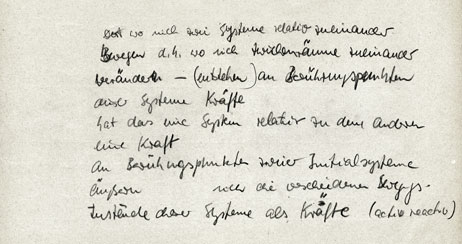 erst wo sich zwei Systeme relativ zueinander
bewegen d.h. wo sich zueinander
verändern – (entstehen) an Berührungspunkten
dieser Systeme Kräfte
hat das eine System relativ zu dem anderen
eine Kraft
an Berührungspunkten zweier Initialsysteme
äußern sich die verschiedenen
zustände dieser Systeme als Kräfte (actio reactio)